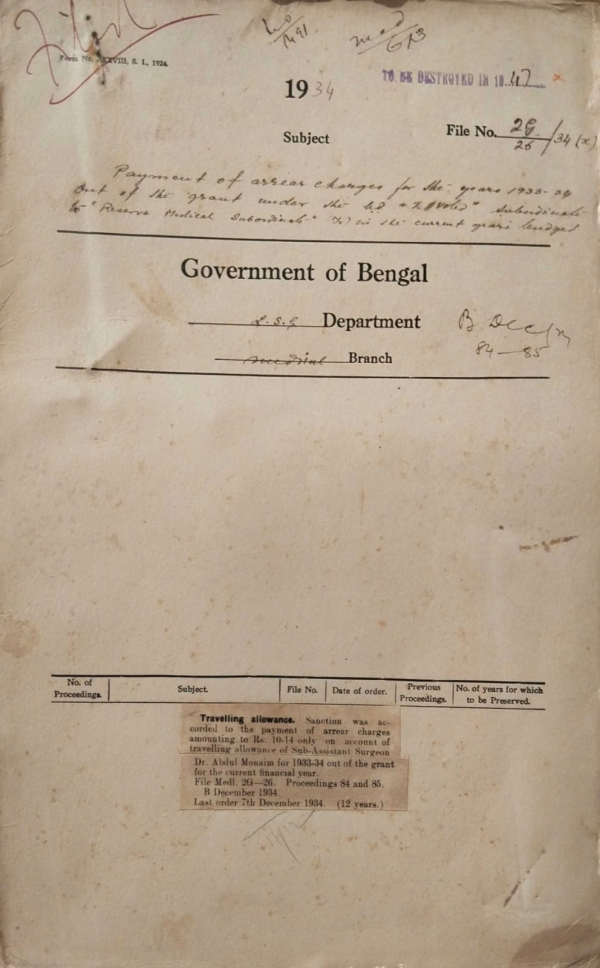 Filed
Form No. XXVIII, S. I., 1924.
TO BE DESTROYED IN 19 47
1934
Subject
File No. 2G/26/34 (x)
Payment of arrear charges for the years 1933-34
out of the grant under the "Voted" Subordinate
to "Reserve Medical Subordinate" in the current years budget
Government of Bengal
L.S.G Department
B Dec
84–85
Medical Branch
No. of Proceedings.
Subject.
File No.
Date of order.
Previous Proceedings.
No. of years for which to be Preserved.
Travelling allowance. Sanction was ac-
corded to the payment of arrear charges
amounting to Rs. 10-14 only on account of
travelling allowance of Sub-Assistant Surgeon
Dr. Abdul Monaim for 1933-34 out of the grant
for the current financial year.
File Medl. 2G—26. Proceedings 84 and 85.
B December 1934.
Last order 7th December 1934. (12 years.)